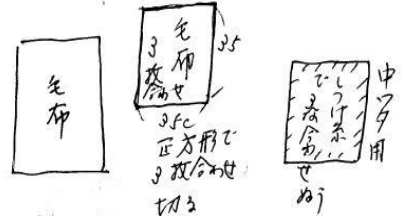 毛布
毛布
3枚合わせ
35
35c
正方形で
3枚合わせ
切る
しつけ糸
で3枚合わせ
ぬう
中ワタ用